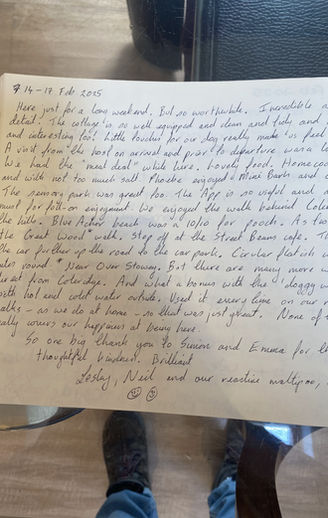 14-17 Feb 2025
Here just for a long weekend. But so worthwhile. Incredible
detail. The cottage is so well equipped and clean and tidy and
and interesting too! Little touches for our dog really made us feel
A visit from the host on arrival and prior to departure was a
We had the "meal deal" while here. Lovely food. Homecooked
and with not too much salt. Phoebe enjoyed Mini Barn and
The sensory park was great too. The App is so useful and
must for enjoyment. We enjoyed the walk behind
the hills. Blue beach was a 10/10 for pooch. As far
the Great Wood walk. Stop off at the Street Beams cafe.
the car further up the road to the car park. Circular
round Nr Over Stowey. But there are many more
direct from Coleridge. And what a bonus with the "doggy
with hot and cold water outside. Used it every time on our
walks - as we do at home - so that was just great. None of
really covers our happiness at being here.
So one big thank you to Simon and Emma for
thoughtful kindness. Brilliant
Lesley, Neil and our reactive maltipoo,